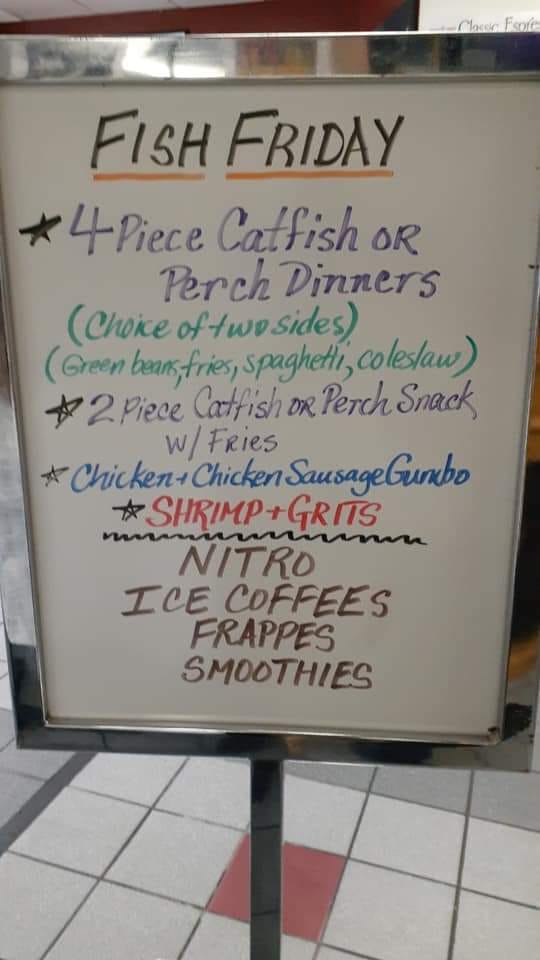 Classic
FISH FRIDAY
★ 4 Piece Catfish OR
Perch Dinners
(Choice of two sides)
(Green beans, fries, spaghetti, coleslaw)
★ 2 Piece Catfish OR Perch Snack
w/ Fries
★ Chicken + Chicken Sausage Gumbo
★ SHRIMP + GRITS
NITRO
ICE COFFEES
FRAPPES
SMOOTHIES